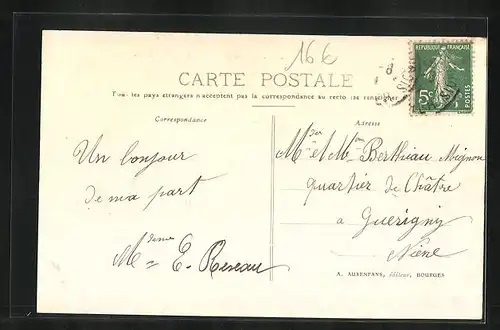 16€
CARTE POSTALE
Tous les pays étrangers n'acceptent pas la correspondance au recto (se renseigner
RÉPUBLIQUE FRANÇAISE
5c
POSTES
Correspondance
Adresse
Un bonjour
de ma part
Mr et Mme Berthiau Mignon
quartier de Châtre
a Guerigny
Nievre
E. Reseau
A. AUXENFANS, éditeur, BOURGES